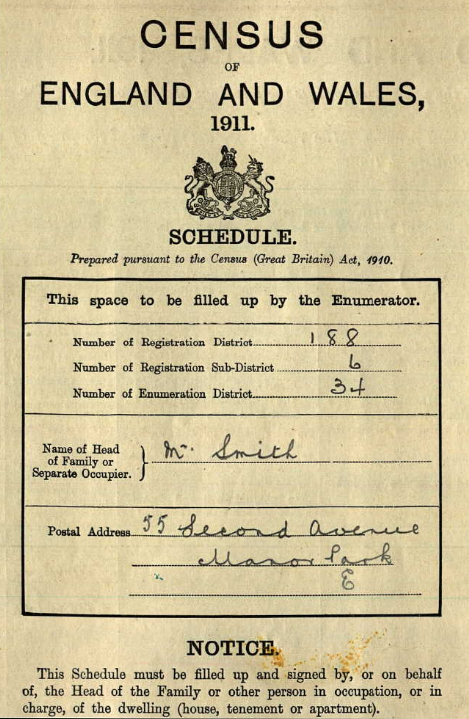 CENSUS
OF
ENGLAND AND WALES,
1911.
SCHEDULE.
Prepared pursuant to the Census (Great Britain) Act, 1910.
This space to be filled up by the Enumerator.
Number of Registration District 188
Number of Registration Sub-District 6
Number of Enumeration District 34
Name of Head
of Family or
Separate Occupier. } Mr. Smith
Postal Address 55 Second Avenue
Manor Park
E
NOTICE.
This Schedule must be filled up and signed by, or on behalf
of, the Head of the Family or other person in occupation, or in
charge, of the dwelling (house, tenement or apartment).